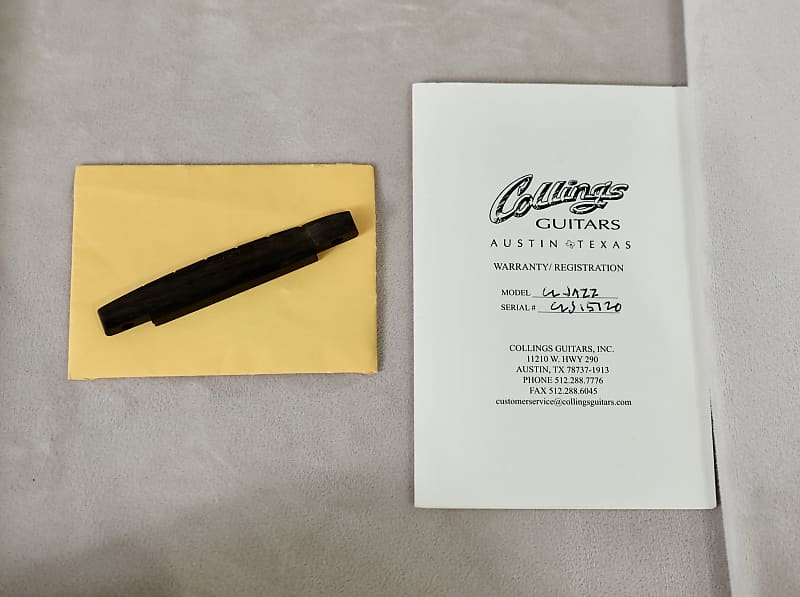 Collings
GUITARS
AUSTIN TEXAS
WARRANTY/ REGISTRATION
MODEL CL JAZZ
SERIAL # CLJ15120
COLLINGS GUITARS, INC.
11210 W. HWY 290
AUSTIN, TX 78737-1913
PHONE 512.288.7776
FAX 512.288.6045
customerservice@collingsguitars.com